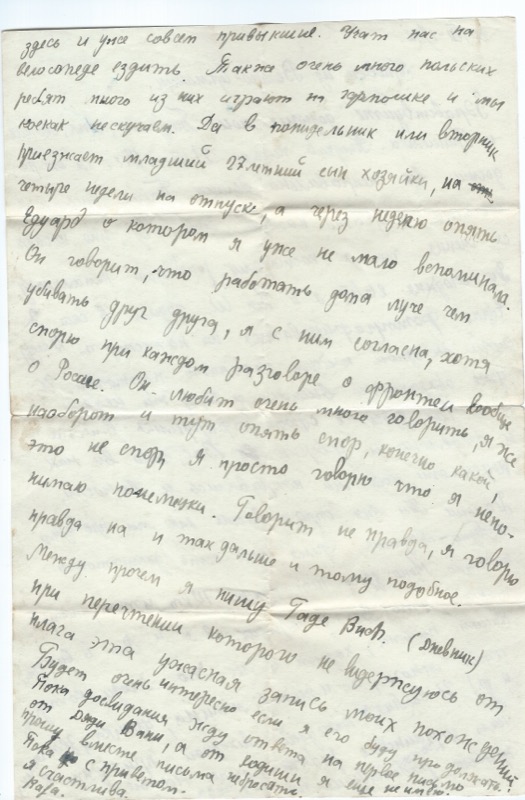 здесь и уже совсем привыкшие. Учат нас на
велосопеде ездить. Также очень много польских
ребят много из них играют на гормошке и мы
коекак нескучаем. Да в понидельник или вторник
приезжает младший 27летний сын хозяйки, на
четыре недели на отпуск, а через неделю опять
Едуард о котором я уже не мало вспоминала.
Он говорит, что работать дома луче чем
убивать друг друга, я с ним согласна, хотя
спорю при каждом разговоре о фронте и вообще
о Росиее. Он любит очень много говорить, я же
наоборот и тут опять спор, конечно какой,
это не спор, я просто говорю что я непо-
нимаю понемецки. Говорит не правда, я говорю
правда на и так дальше и тому подобное.
Между прочем я пишу Tage Buch. (Дневник)
при перечтении которого не видержуюсь от
плага эта ужасная запись моих похождений
Будет очень интиресно если я его буду продолжать.
Пока досвидания жду ответа на первое письмо
от Дяди Вани, а от
прошу вместе письма небросать
Пока с приветом.
я счастлива.